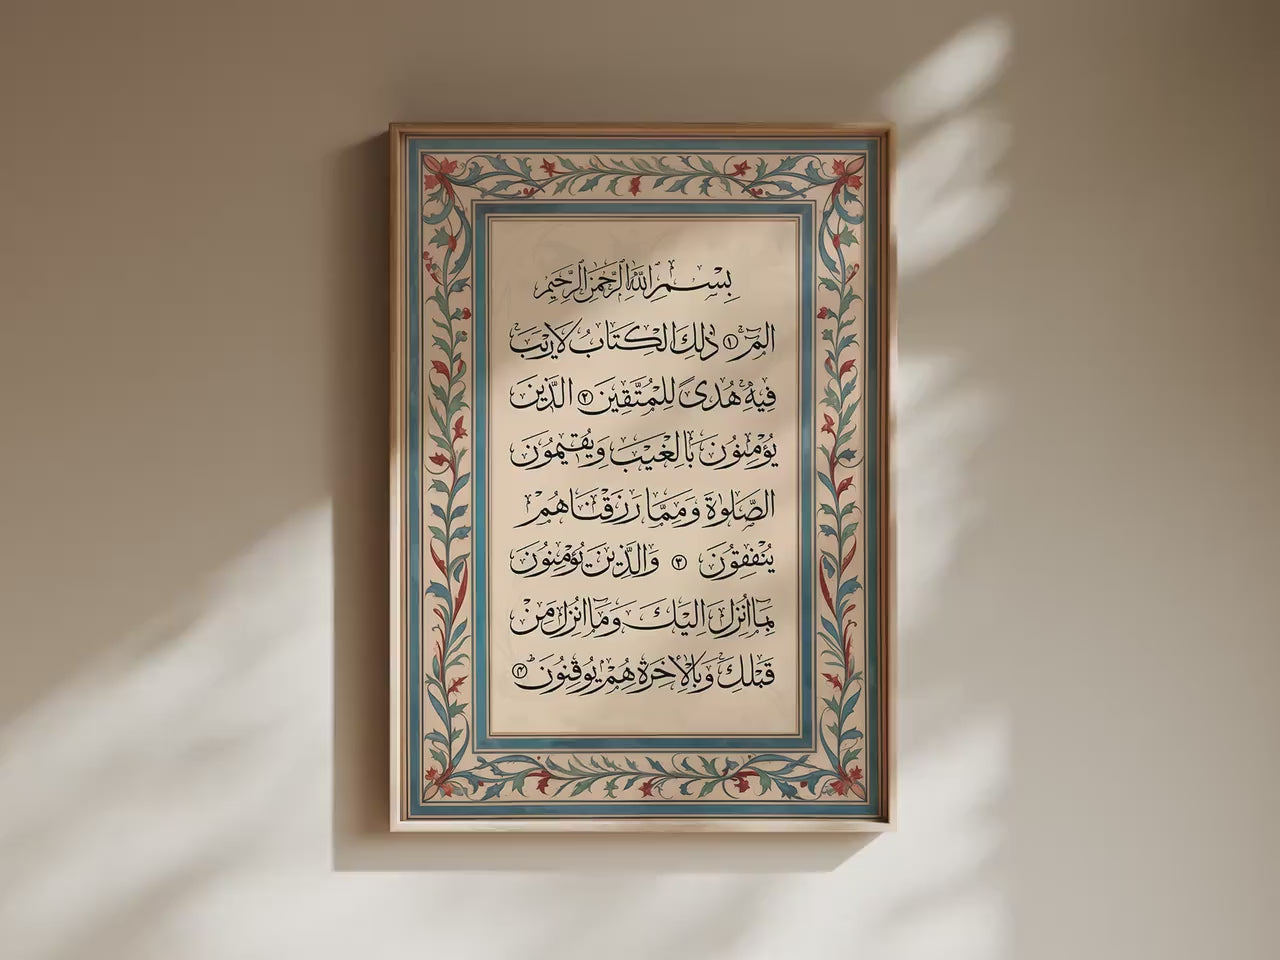 بِسْمِ اللَّهِ الرَّحْمٰنِ الرَّحِيْمِ
الٓمّٓ ۝١ ذٰلِكَ الْكِتَابُ لَا رَيْبَ
فِيْهِ هُدًى لِلْمُتَّقِيْنَ ۝٢ الَّذِيْنَ
يُؤْمِنُوْنَ بِالْغَيْبِ وَيُقِيْمُوْنَ
الصَّلٰوةَ وَمِمَّا رَزَقْنَاهُمْ
يُنْفِقُوْنَ ۝٣ وَالَّذِيْنَ يُؤْمِنُوْنَ
بِمَٓا اُنْزِلَ اِلَيْكَ وَمَٓا اُنْزِلَ مِنْ
قَبْلِكَ وَبِالْاٰخِرَةِ هُمْ يُوْقِنُوْنَ ۝٤